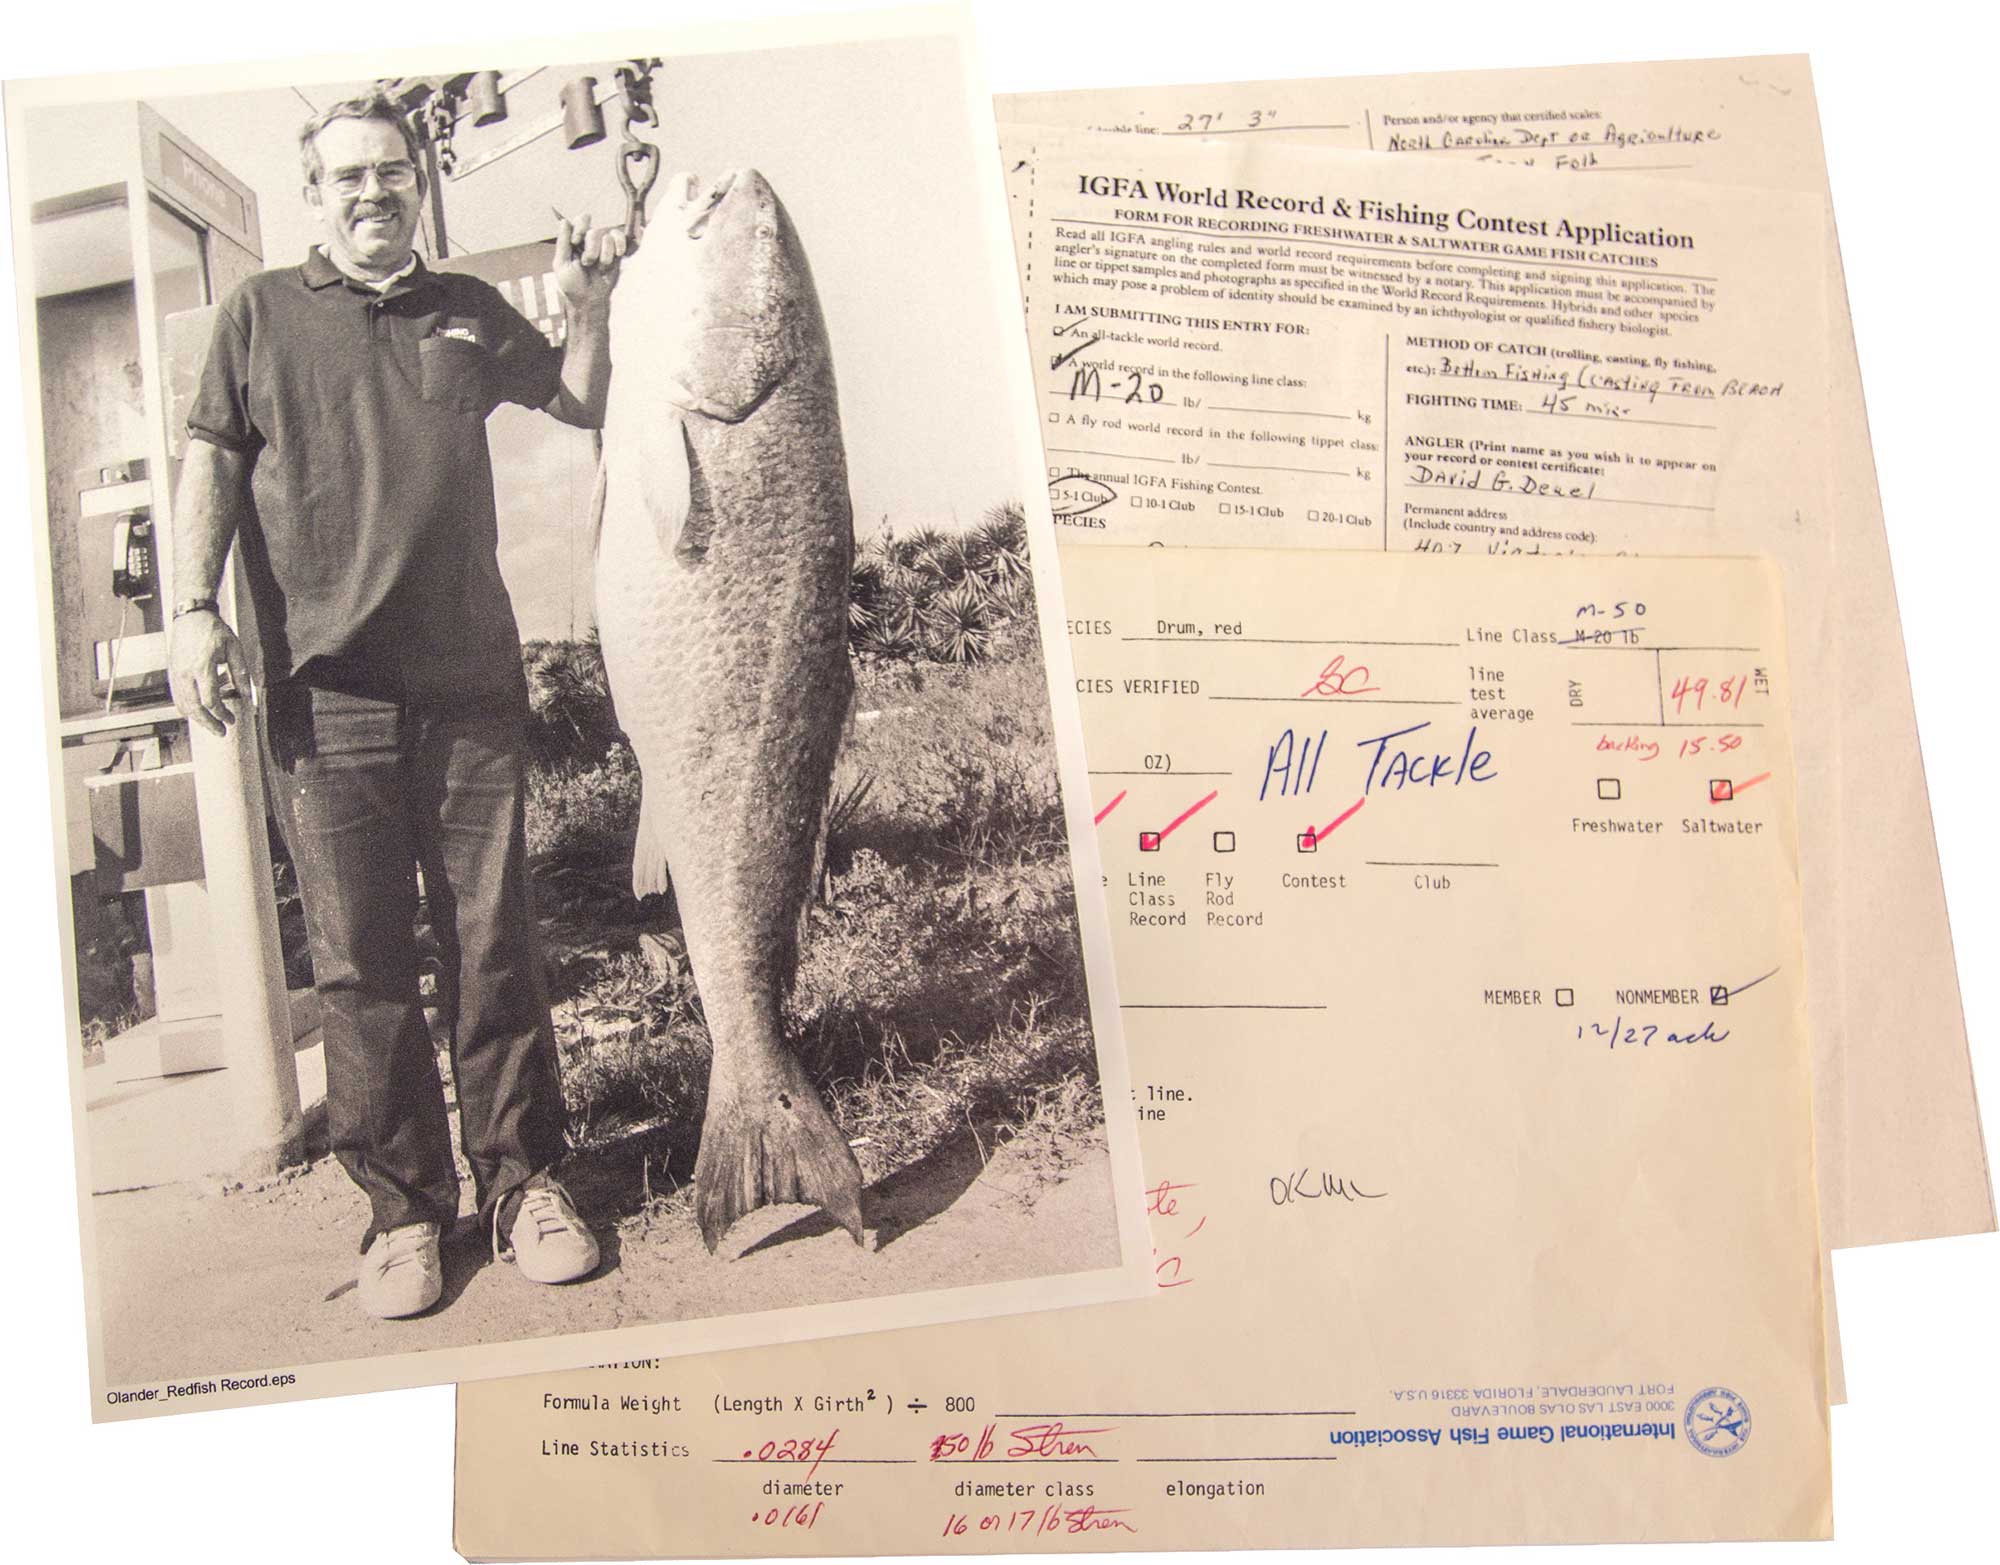 PHONE
Olander_Redfish Record.eps
line: 27' 3"
Person and/or agency that certified scales:
North Carolina Dept of Agriculture
Folk
IGFA World Record & Fishing Contest Application
FORM FOR RECORDING FRESHWATER & SALTWATER GAME FISH CATCHES
Read all IGFA angling rules and world record requirements before completing and signing this application. The
angler's signature on the completed form must be witnessed by a notary. This application must be accompanied by
line or tippet samples and photographs as specified in the World Record Requirements. Hybrids and other species
which may pose a problem of identity should be examined by an ichthyologist or qualified fishery biologist.
I AM SUBMITTING THIS ENTRY FOR:
An all-tackle world record.
A world record in the following line class:
M-20 lb/ kg
A fly rod world record in the following tippet class:
lb/ kg
The annual IGFA Fishing Contest.
5-1 Club 10-1 Club 15-1 Club 20-1 Club
PECIES
METHOD OF CATCH (trolling, casting, fly fishing,
etc.): Bottom Fishing (Casting From Beach
FIGHTING TIME: 45 min
ANGLER (Print name as you wish it to appear on
your record or contest certificate:
David G. Deuel
Permanent address
(Include country and address code):
407
ECIES Drum, red
M-50
Line Class M-20 lb
CIES VERIFIED
line
test
average
DRY
49.81
WET
backing 15.50
OZ)
All Tackle
Freshwater Saltwater
Line
Class
Record
Fly
Rod
Record
Contest
Club
MEMBER NONMEMBER
12/27 ack
line.
ine
te,
OK
Formula Weight (Length X Girth2 ) ÷ 800
Line Statistics .0284 50 lb Stren
diameter diameter class elongation
.0161 16 or 17 lb Stren
International Game Fish Association
3000 EAST LAS OLAS BOULEVARD
FORT LAUDERDALE, FLORIDA 33316 U.S.A.